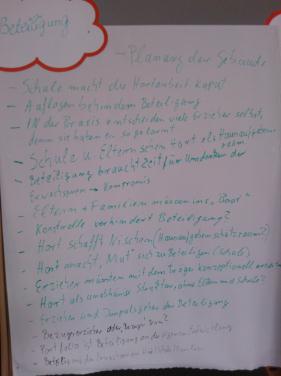 Beteiligung
- Planung der Gebäude
- Schule macht die Hortarbeit kaput
- Auflagen behindern Beteiligung
- IN der Praxis entscheiden viele Erzieher selbst,
denn sie haben es so gelernt
- Schule u. Eltern sehen Hort als Hausaufgaben
raum
- Beteiligung braucht Zeit / für Umdenken der
Erwachsenen → Kompromis
- Eltern + Familien müssen ins "Boot"
- Kontrolle verhindert Beteiligung?
- Hort schafft Nischen (Hausaufgabenschutzraum?)
- Hort macht "Mut" sich zu Beteiligen (Schule)
- Erzieher müssten mit dem Träger konzeptionell
- Hort als ohne Eltern und Schule?
- Erzieher sind Impulsgeber der Beteiligung
- Bezugserzieher
- Portfolio ist Beteiligung an der eigenen Entwicklung